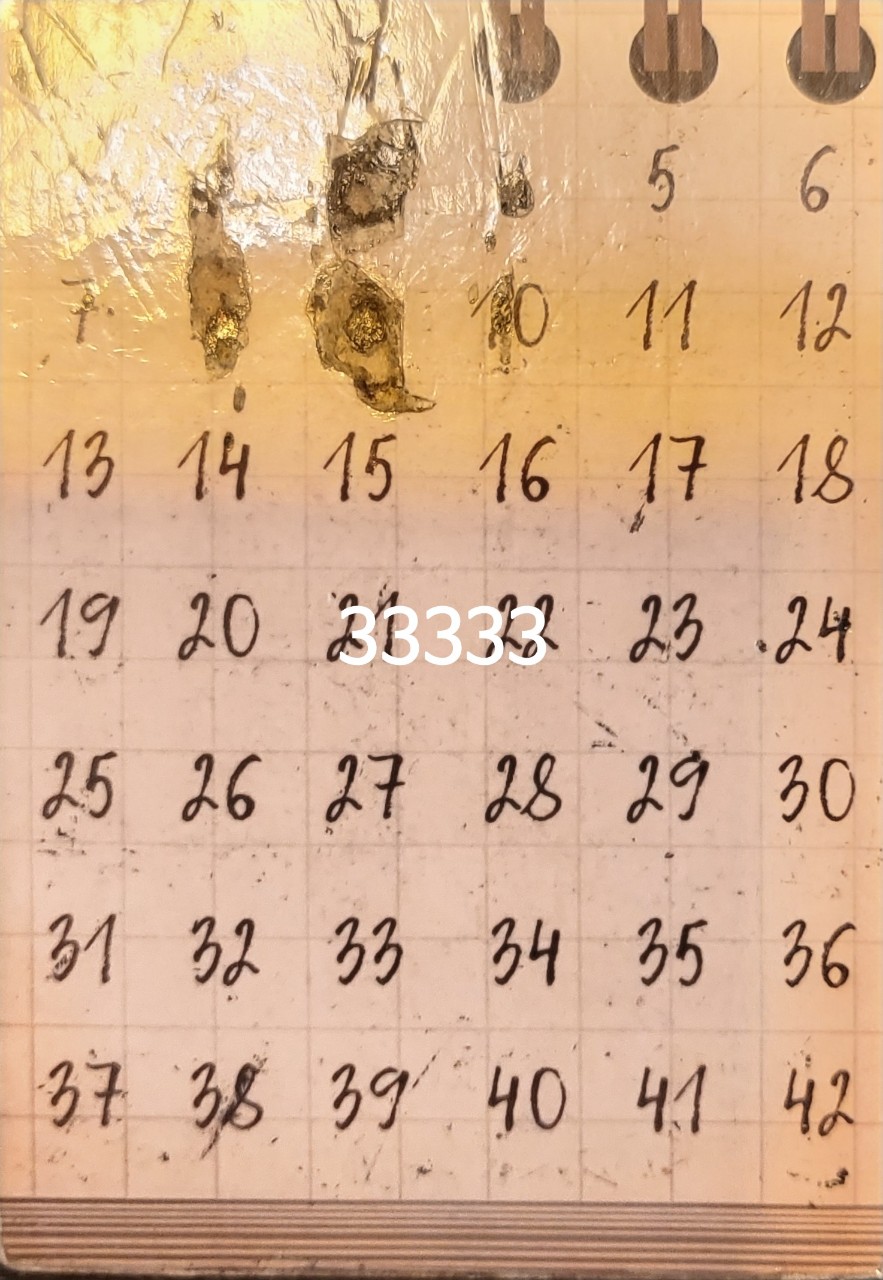 5 6
7 10 11 12
13 14 15 16 17 18
19 20 21 22 23 24
33333
25 26 27 28 29 30
31 32 33 34 35 36
37 38 39 40 41 42